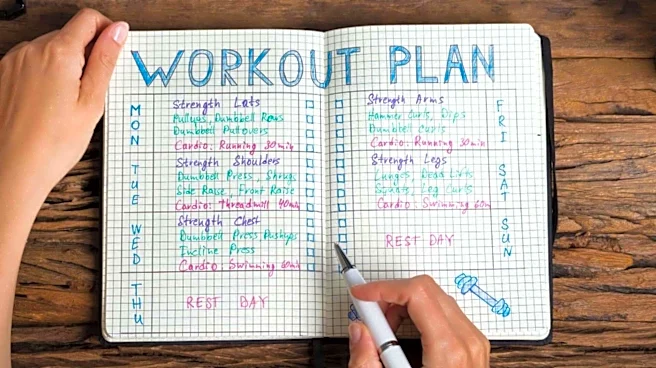 WORKOUT PLAN
MON
Strength Lats
Pullups, Dumbbell Rows
Dumbbell Pullovers
Cardio: Running 30min
TUE
Strength Shoulders
Dumbbell Press, Shrugs
Side Raise, Front Raise
Cardio: Threadmill 40min
WED
Strength Chest
Dumbbell Press Pushups
Incline Press
Cardio: Swimming 60min
THU
REST DAY
Strength Arms
Hammer Curls, Dips
Dumbbell Curls
Cardio: Running 30min
FRI
Strength Legs
Lunges, Dead Lifts
Squats, Leg Curls
Cardio: Swimming 60m
SAT
REST DAY
SUN